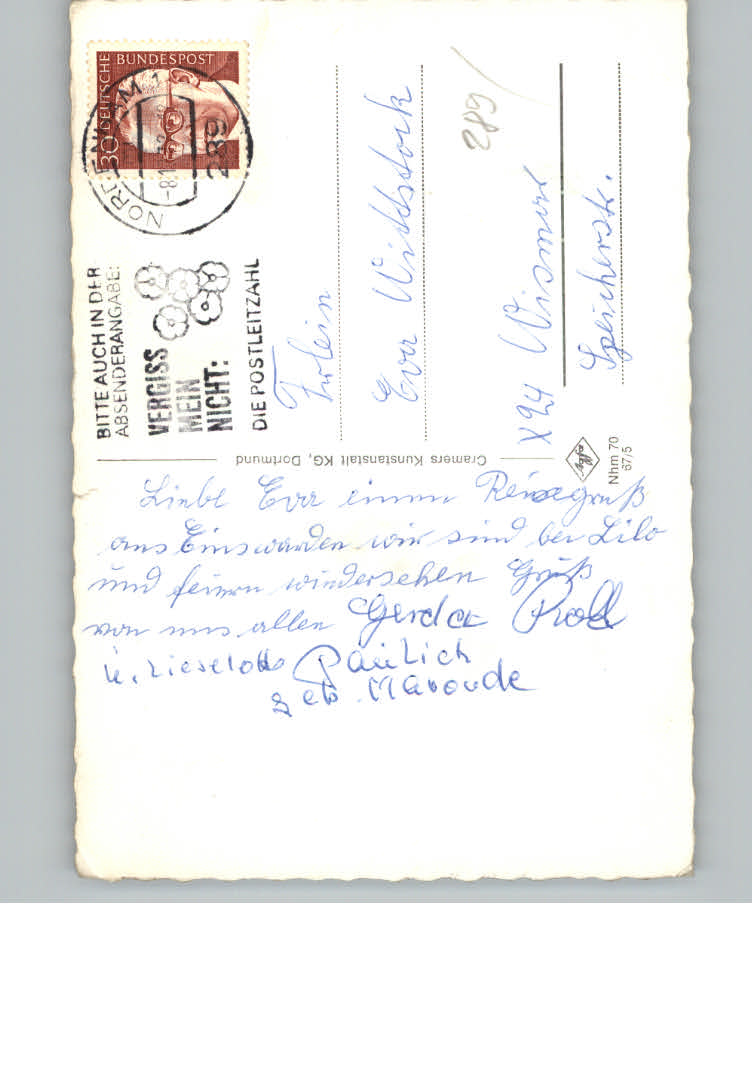 DEUTSCHE BUNDESPOST
30
NORDENHAM 1
289
BITTE AUCH IN DER
ABSENDERANGABE:
VERGISS
MEIN
NICHT:
DIE POSTLEITZAHL
289
Frlein
Eva
X24 Wismar
Speicherstr.
Cramers Kunstanstalt KG, Dortmund
Agfa
Nhm 70
67/5
Liebe Eva einen Reisegruß
aus Einswarden wir sind bei Lilo
und feiern wiedersehen Gruß
von uns allen Gerda Proll
u. Lieselotte Paulich
geb. Maronde